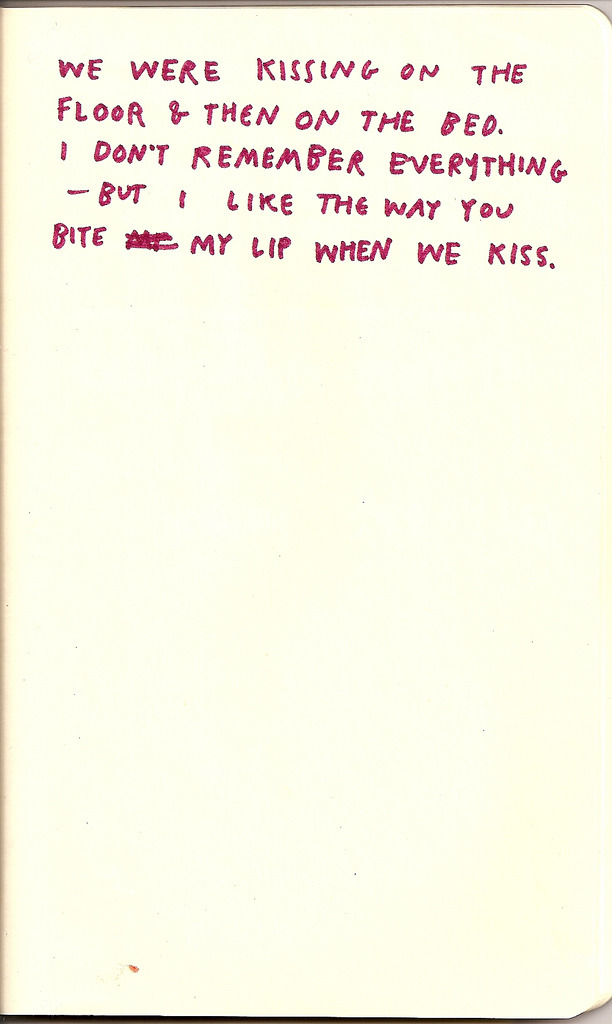 WE WERE KISSING ON THE
FLOOR & THEN ON THE BED.
I DON'T REMEMBER EVERYTHING
- BUT I LIKE THE WAY YOU
BITE MY LIP WHEN WE KISS.